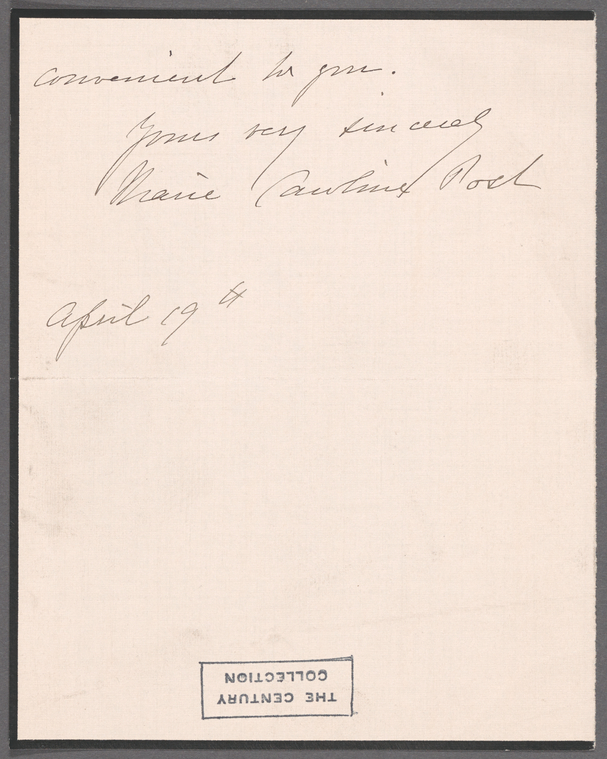 convenient to you.
Yours very sincerely
Marie Caroline Post
April 19th
THE CENTURY
COLLECTION